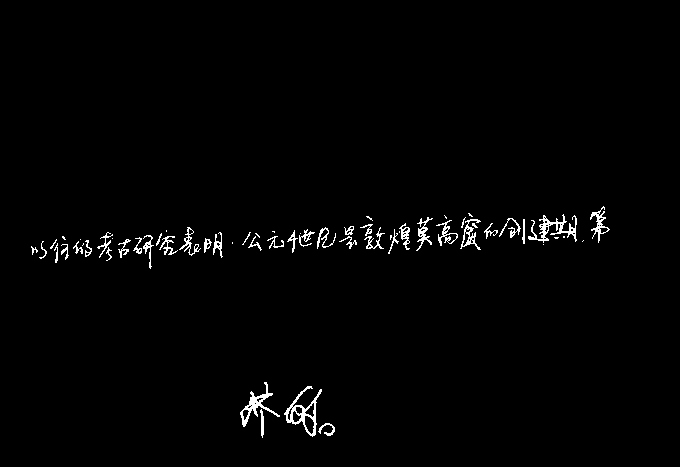 以往的考古研究表明.公元4世纪是敦煌莫高窟的创建期.第